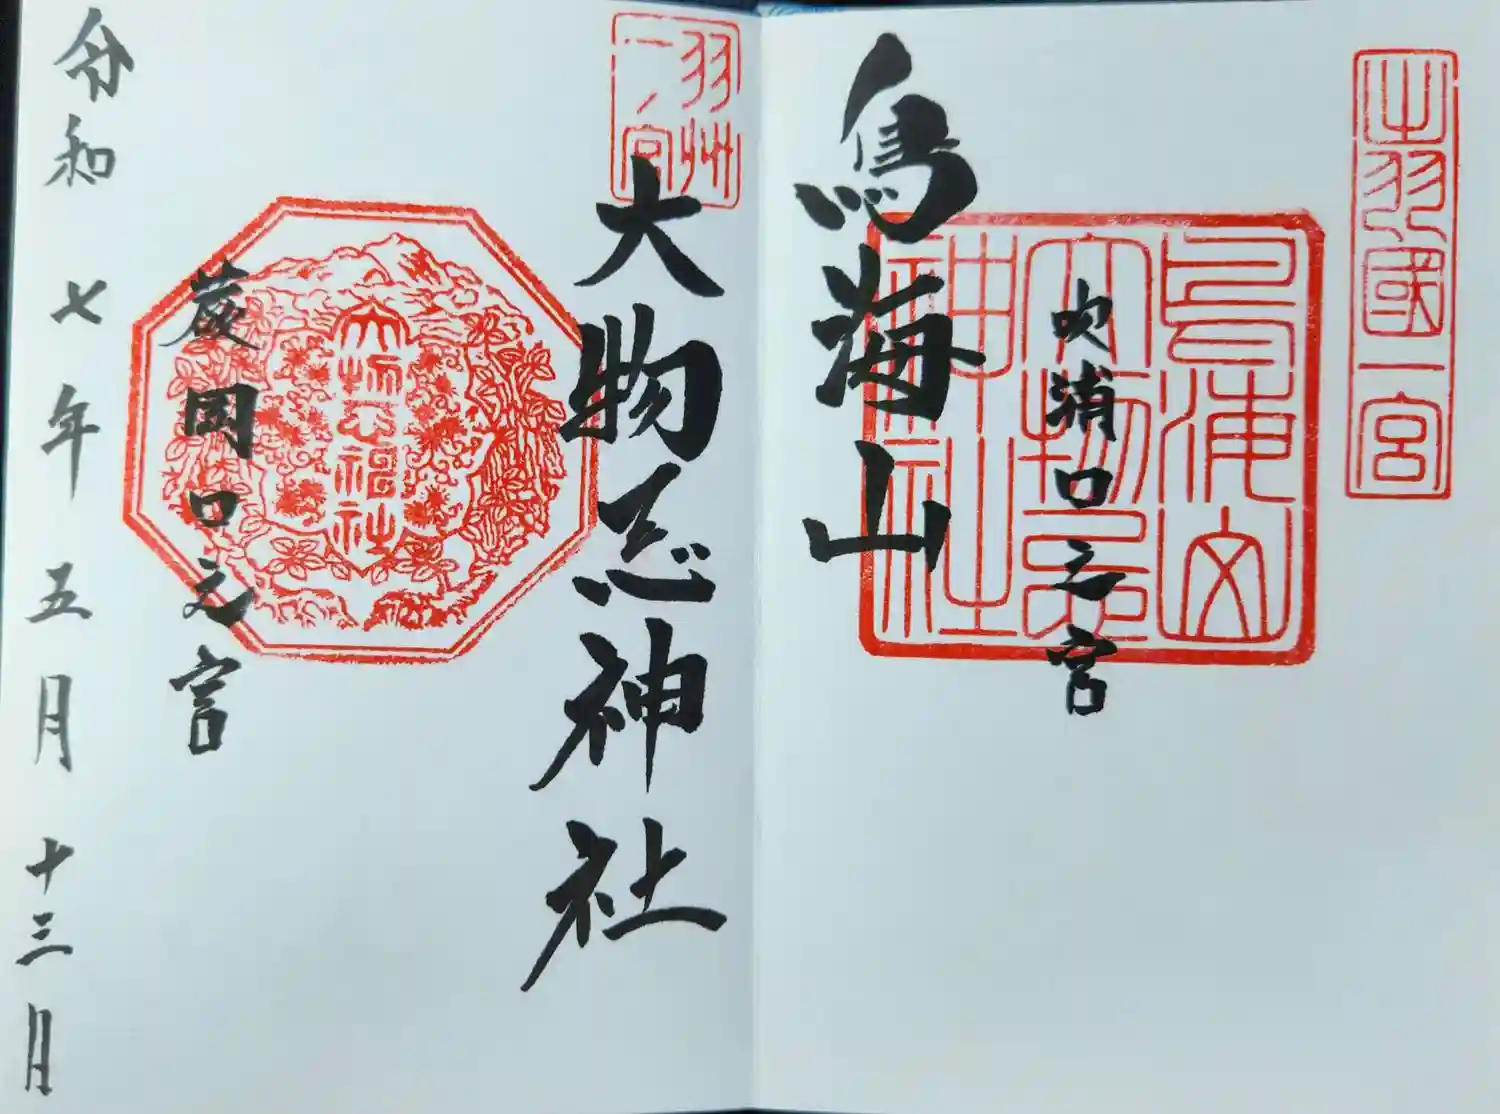 出羽國一宮
鳥海山
大物忌
神社
吹浦口之宮
鳥海山
羽州
一ノ宮
大物忌神社
大物忌神社
蕨岡口之宮
令和七年五月十三日